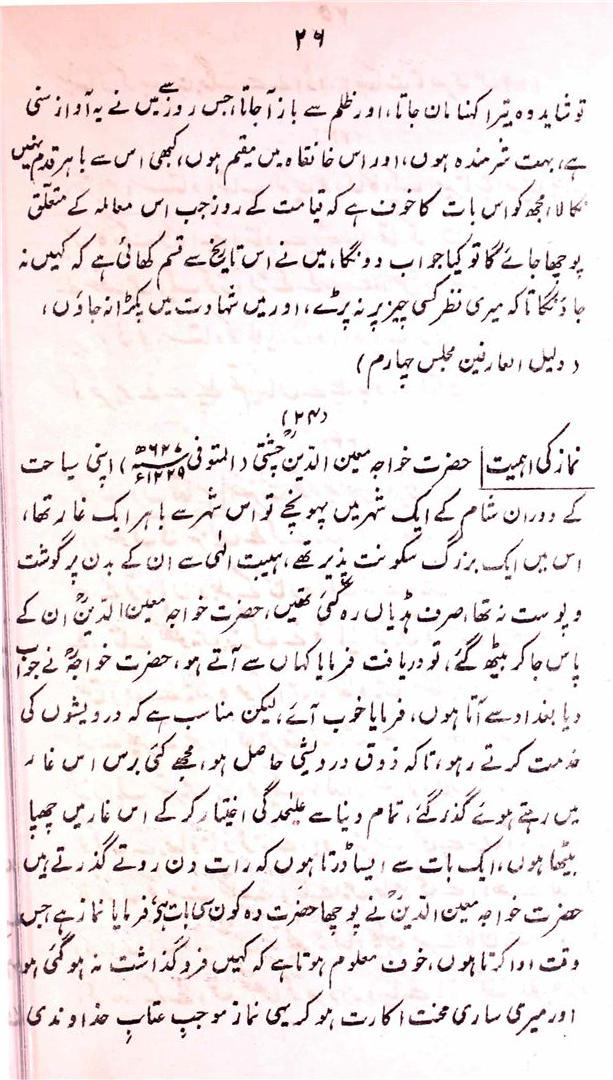 ۲۶
تو شاید وہ تیرا کہنا مان جاتا، اور ظلم سے باز آجاتا، جس روز سے میں نے یہ آواز سنی
ہے، بہت شرمندہ ہوں، اور اس خانقاہ میں مقیم ہوں، کبھی اس سے باہر قدم نہیں
نکالا، مجھ کو اس بات کا خوف ہے کہ قیامت کے روز جب اس معاملہ کے متعلق
پوچھا جائے گا تو کیا جواب دونگا، میں نے اس تاریخ سے قسم کھائی ہے کہ کہیں نہ
جاؤنگا تاکہ میری نظر کسی چیز پر نہ پڑے، اور میں شہادت میں پکڑا نہ جاؤں،
(دلیل العارفین مجلس چہارم)
(۲۴)
نماز کی اہمیت حضرت خواجہ معین الدین چشتیؒ (المتوفی ۶۲۷ھ ۱۲۲۹ء) اپنی سیاحت
کے دوران شام کے ایک شہر میں پہونچے تو اس شہر سے باہر ایک غار تھا،
اس میں ایک بزرگ سکونت پذیر تھے، ہیبت الٰہی سے ان کے بدن پر گوشت
و پوست نہ تھا، صرف ہڈیاں رہ گئی تھیں، حضرت خواجہ معین الدینؒ ان کے
پاس جا کر بیٹھ گئے، تو دریافت فرمایا کہاں سے آتے ہو، حضرت خواجہؒ نے جواب
دیا بغداد سے آتا ہوں، فرمایا خوب آئے، لیکن مناسب ہے کہ درویشوں کی
خدمت کرتے رہو، تاکہ ذوق درویشی حاصل ہو، مجھے کئی برس اس غار
میں رہتے ہوئے گذر گئے، تمام دنیا سے علیٰحدگی اختیار کر کے اس غار میں چھپا
بیٹھا ہوں، ایک بات سے ایسا ڈرتا ہوں کہ رات دن روتے گذرتے ہیں
حضرت خواجہ معین الدینؒ نے پوچھا حضرت وہ کون سی بات ہے، فرمایا نماز ہے جس
وقت ادا کرتا ہوں، خوف معلوم ہوتا ہے کہ کہیں فروگذاشت نہ ہو گئی ہو
اور میری ساری محنت اکارت ہو کر یہی نماز موجبِ عتابِ خداوندی